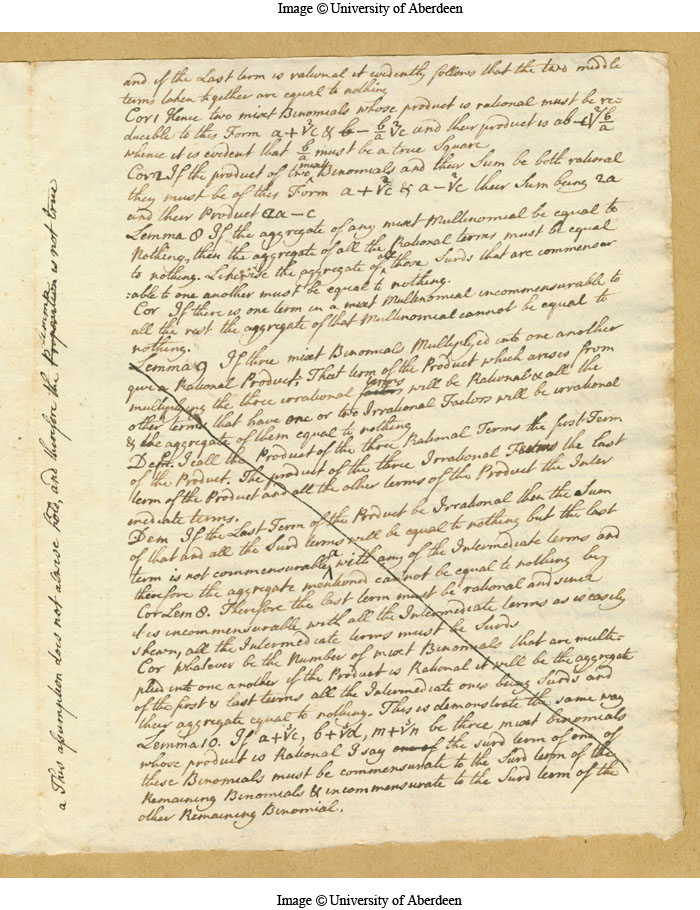 Image © University of Aberdeen
and if the Last term is rational it evidently follows that the two middle
terms taken together are equal to nothing
Cor 1 Hence two mixt Binomials whose product is rational must be re-
ducible to this Form a+²√c & b - b/a ²√c and their product is ab - c ²√b/a
whence it is evident that b/a must be a true Square
Cor 2 If the product of two mixt Binomials and their Sum be both rational
they must be of this Form a+²√c & a-²√c their Sum being 2a
and their Product 2a-c
Lemma 8 If the aggregate of any mixt Multinomial be equal to
Nothing, then the aggregate of all the Rational terms must be equal
to nothing. Likewise the aggregate of all those Surds that are commensur
=able to one another must be equal to nothing.
Cor If there is one term in a mixt Multinomial incommensurable to
all the rest the aggregate of that Multinomial cannot be equal to
nothing.
Lemma 9 If three mixt Binomials Multiplyed into one another
give a Rational Product; That term of the Product which arises from
multiplying the three irrational factors terms will be Rational & all the
other terms that have one or two Irrational Factors will be irrational
& the aggregate of them equal to nothing
Defn. I call the Product of the three Rational Terms the first Term
of the Product. The product of the three Irrational Terms the last
term of the Product and all the other terms of the Product the Inter
mediate terms.
Dem If the Last Term of the Product be Irrational then the Sum
of that and all the Surd terms will be equal to nothing but the last
term is not commensurable a with any of the Intermediate terms and
therefore the aggregate mentioned cannot be equal to nothing by
Cor Lem 8. Therefore the last term must be rational and since
it is incommensurable with all the Intermediate terms as is easily
shewn, all the Intermediate terms must be Surds
Cor Whatever be the Number of mixt Binomials that are multi=
plied into one another if the Product is Rational it will be the aggregate
of the first & last terms all the Intermediate ones being Surds and
their aggregate equal to nothing. This is demonstrate the same way
Lemma 10. If a+³√c, b+³√d, m+³√n be three mixt binomials
whose product is Rational I say one of the surd term of one of
these Binomials must be commensurate to the Surd term of the
Remaining Binomials & incommensurate to the Surd term of the
other Remaining Binomial.
a This assumption does not alwise hold, and therefore the Proposition Lemma is not true
Image © University of Aberdeen